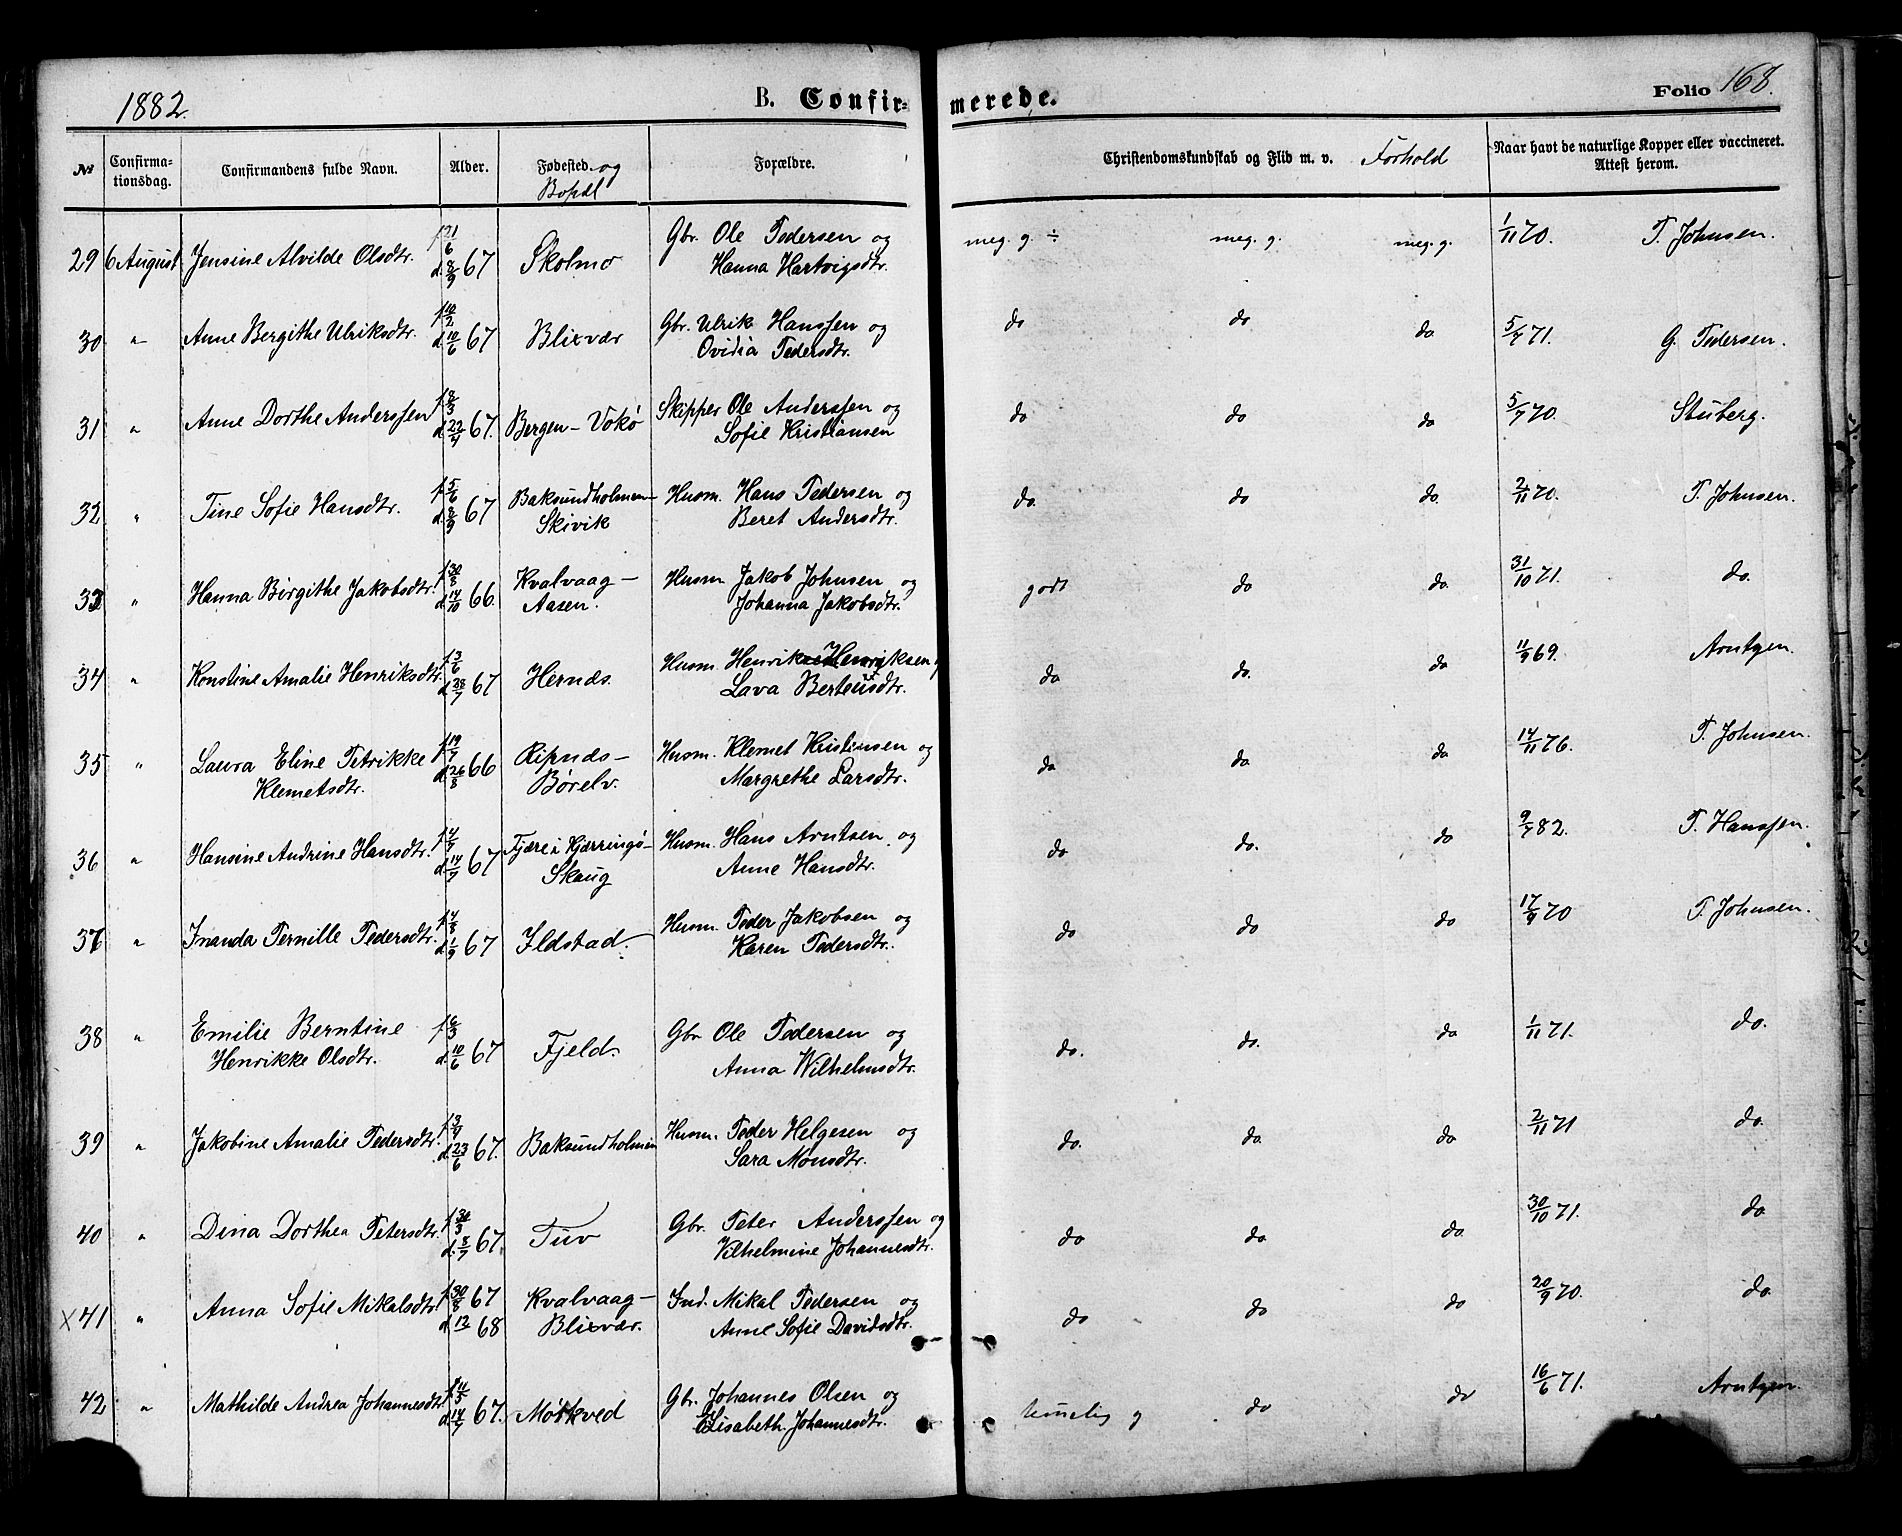 1882. B. Confirmerede. Folio 168.
№ Confirmationsdag. Confirmandens fulde Navn. Alder. Fødested og Bopæl Forældre. Christendomskundskab og Flid m. v. Forhold Naar havt de naturlige Kopper eller vaccineret. Attest herom.
29 6 August Jensine Alvilde Olsdtr. f 21/6 d. 8/9 67 Skolmo Gbr. Ole Pedersen og Hanna Hartvigsdtr. meg. g. ÷ meg. g. meg. g. 1/11 70. P. Johnsen.
30 " Anne Bergithe Ulriksdtr. f 10/2 d. 10/6 67 Blixvær Gbr. Ulrik Hanssen og Ovidia Pedersdtr. do do do 5/7 71. G. Pedersen.
31 " Anne Dorthe Anderssen f 8/3 d. 22/4 67. Bergen - Vokø Skipper Ole Anderssen og Sofie Kristiansen do do do 5/7 70. Stuberg.
32 " Tine Sofie Hansdtr. f 5/6 d. 8/9 67 Baksundholmen - Skivik Husm. Hans Pedersen og Beret Andersdtr. do. do do. 2/11 70. P. Johnsen.
33 " Hanna Birgithe Jakobsdtr. f 30/8 d. 14/10 66. Kvalvaag - Aasen. Husm. Jakob Johnsen og Johanna Jakobsdtr. godt do do. 31/10 71. do.
34 " Konstine Amalie Henriksdtr. f 3/6 d. 28/7 67 Hernæs. Husm. Henrik Henriksen Lava Berteusdtr. do do. do 11/9 69. Arntzen.
35 " Laura Eline Petrikke Klemetsdtr. f 19/7 d. 26/8 66 Ripnæs - Børelv. Husm. Klemet Kristensen og Margrethe Larsdtr. do do do 14/11 76. P. Johnsen.
36 " Hansine Andrine Hansdtr. f 4/7 d. 14/7 67 Fjære i Kjærringø - Skaug Husm. Hans Arntsen og Anne Hansdtr. do do. do 9/7 82. P. Hanssen.
37 " Inanda Pernille Pedersdtr. f 4/8 d. 1/9 67 Ildstad. Husm. Peder Jakobsen og Karen Pedersdtr. do do do 17/9 70 P. Johnsen.
38 " Emilie Berntine Henrikke Olsdtr. f 6/3 d. 10/6 67 Fjeld. Gbr. Ole Pedersen og Anna Wilhelmsdtr. do. do. do 1/11 71. do.
39 " Jakobine Amalie Pedersdtr. f 3/4 d. 23/6 67. Baksundholmen Husm. Peder Helgesen og Sara Monsdtr. do. do do 2/11 71 do.
40 " Dina Dorthea Petersdtr. f 30/3 d. 8/7 67. Tuv Gbr. Peter Anderssen og Vilhelmine Johannesdtr. do do do 30/10 71. do
x 41 " Anna Sofie Mikalsdtr. f 30/8 67 d. 12 68 Kvalvaag - Blixvær. Ind. Mikal Pedersen og Anne Sofie Davidsdtr. do do do 20/9 70. do.
42 " Mathilde Andrea Johannesdtr. f 11/5 d. 14/7 67. Mørkved Gbr. Johannes Olsen og Elisabeth Johannesdtr. temelig g do do 16/6 71. Arntzen.